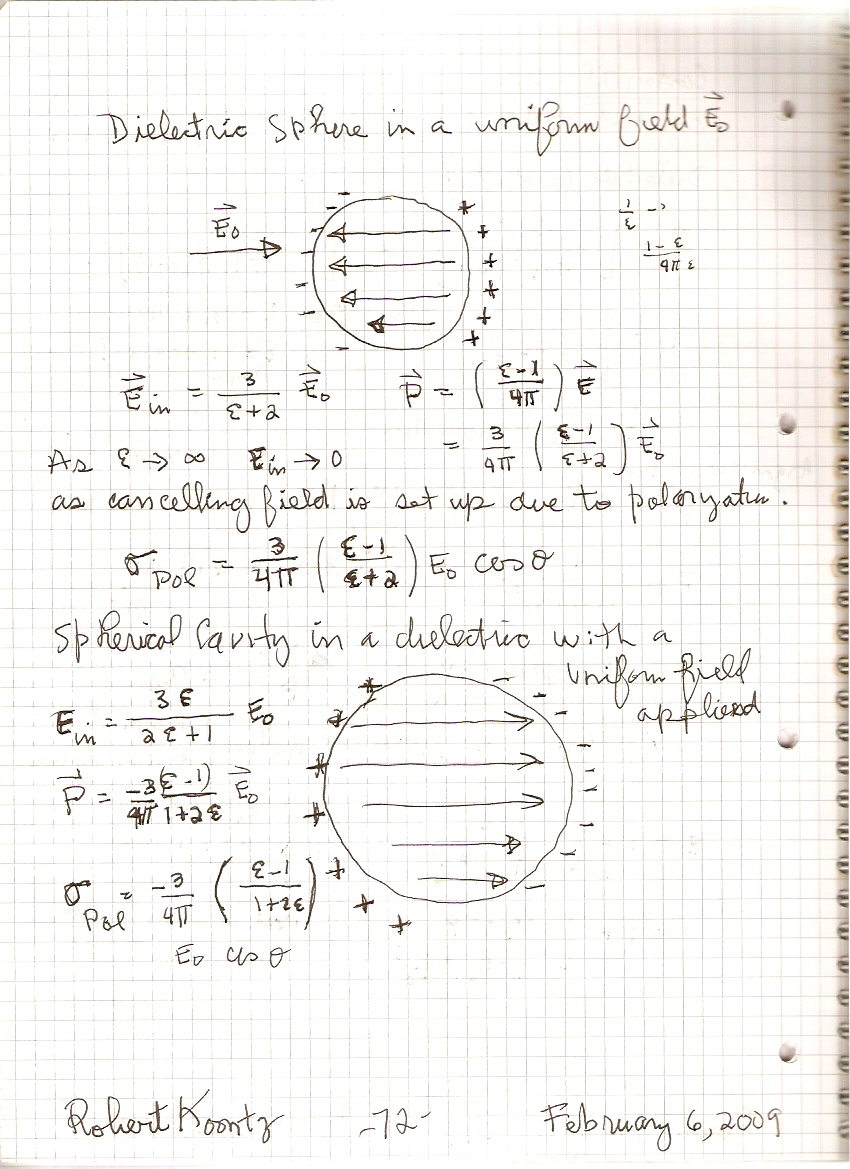 Dielectric Sphere in a uniform field E⃗₀
E⃗₀
1/ε -
1-ε / 4π ε
E⃗in = 3/(ε+2) E⃗₀   P⃗ = ((ε-1)/4π) E⃗
As ε → ∞   Ein → 0   = 3/4π ((ε-1)/(ε+2)) E⃗₀
as cancelling field is set up due to polaryatin.
σpol = 3/4π ((ε-1)/(ε+2)) E₀ cos θ
Spherical Cavity in a dielectric with a
uniform field
applied
Ein = 3ε/(2ε+1) E₀
P⃗ = -3(ε-1)/4π(1+2ε) E⃗₀
σPol = -3/4π ((ε-1)/(1+2ε))
E₀ cos θ
Robert Koontz   -72-   February 6, 2009